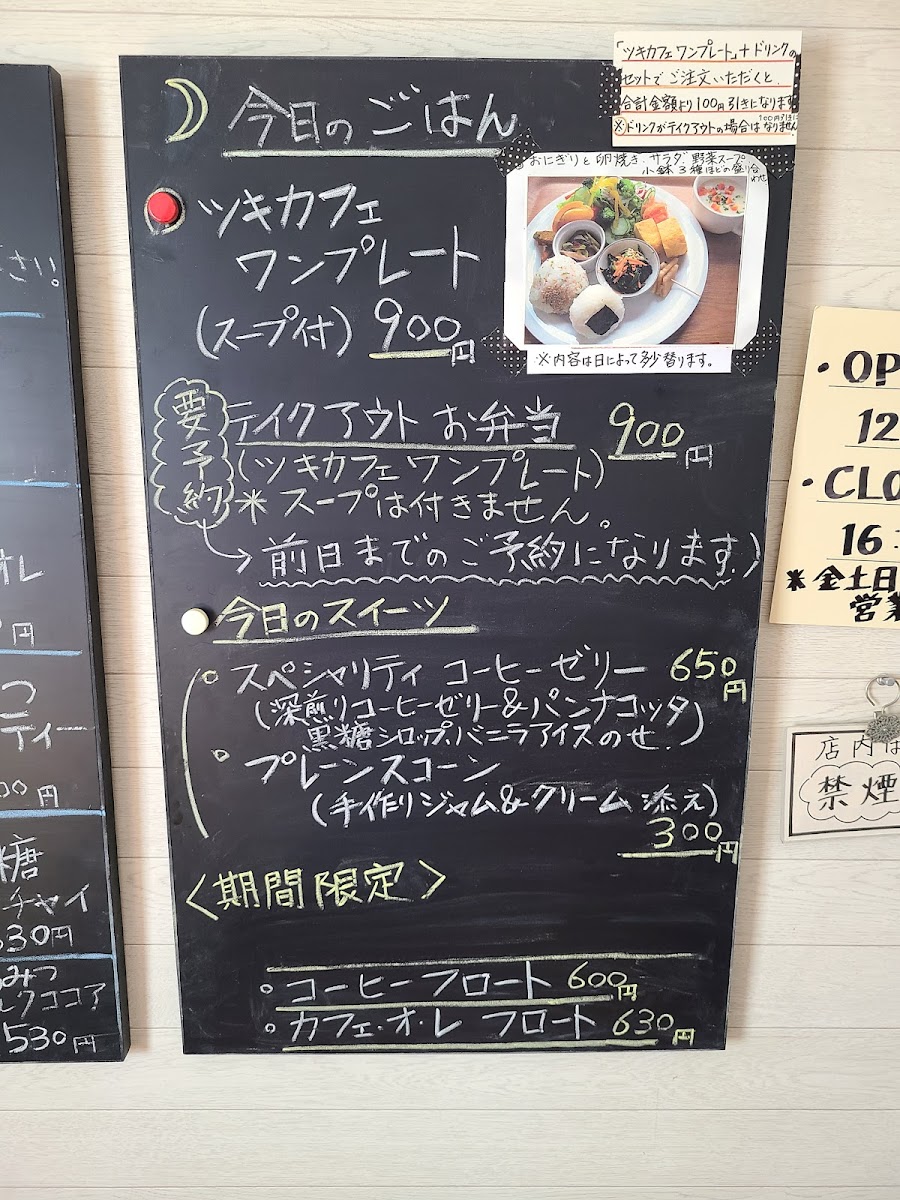 今日のごはん
「ツキカフェワンプレート」+ドリンクの
セットでご注文いただくと
合計金額より100円引きになります
100円引きに
※ドリンクがテイクアウトの場合はなりません
おにぎりと卵焼き、サラダ、野菜スープ
小鉢3種ほどの盛り合わせ
ツキカフェ
ワンプレート
(スープ付) 900円
※内容は日によって多少替ります。
要予約
テイクアウト お弁当 900円
(ツキカフェワンプレート)
＊スープは付きません。
→前日までのご予約になります。)
今日のスイーツ
○スペシャリティ コーヒーゼリー 650円
(深煎りコーヒーゼリー&パンナコッタ
黒糖シロップ、バニラアイスのせ.)
○プレーンスコーン
(手作りジャム&クリーム添え)
300円
<期間限定>
○コーヒーフロート 600円
○カフェ・オ・レ フロート 630円
さい!
オレ
円
つ
ティー
00円
糖
チャイ
530円
みつ
ルクココア
530円
・OP
12
・CLO
16:
＊金土日
営業
店内は
禁煙